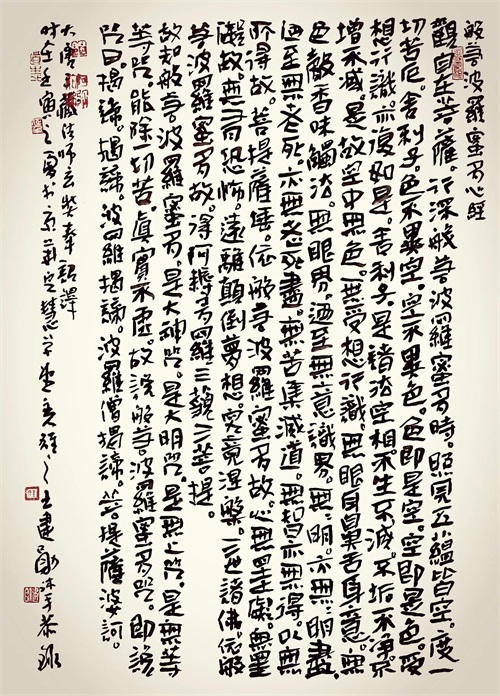 般若波羅蜜多心經
觀自在菩薩。行深般若波羅蜜多時。照見五蘊皆空。度一
切苦厄。舍利子。色不異空。空不異色。色即是空。空即是色。受
想行識。亦復如是。舍利子。是諸法空相。不生不滅。不垢不淨。不
增不減。是故空中無色。無受想行識。無眼耳鼻舌身意。無
色聲香味觸法。無眼界。迺至無意識界。無無明。亦無無明盡。
迺至無老死。亦無老死盡。無苦集滅道。無智亦無得。以無
所得故。菩提薩埵。依般若波羅蜜多故。心無罣礙。無罣
礙故。無有恐怖。遠離顛倒夢想。究竟涅槃。三世諸佛。依般
若波羅蜜多故。得阿耨多羅三藐三菩提。
故知般若波羅蜜多。是大神咒。是大明咒。是無上咒。是無等
等咒。能除一切苦。真實不虛。故說般若波羅蜜多咒。即說
咒曰。揭諦。揭諦。波羅揭諦。波羅僧揭諦。菩提薩婆訶。
大唐三藏法師玄奘奉詔譯
時在壬寅之夏於京華 王建 沐手恭錄